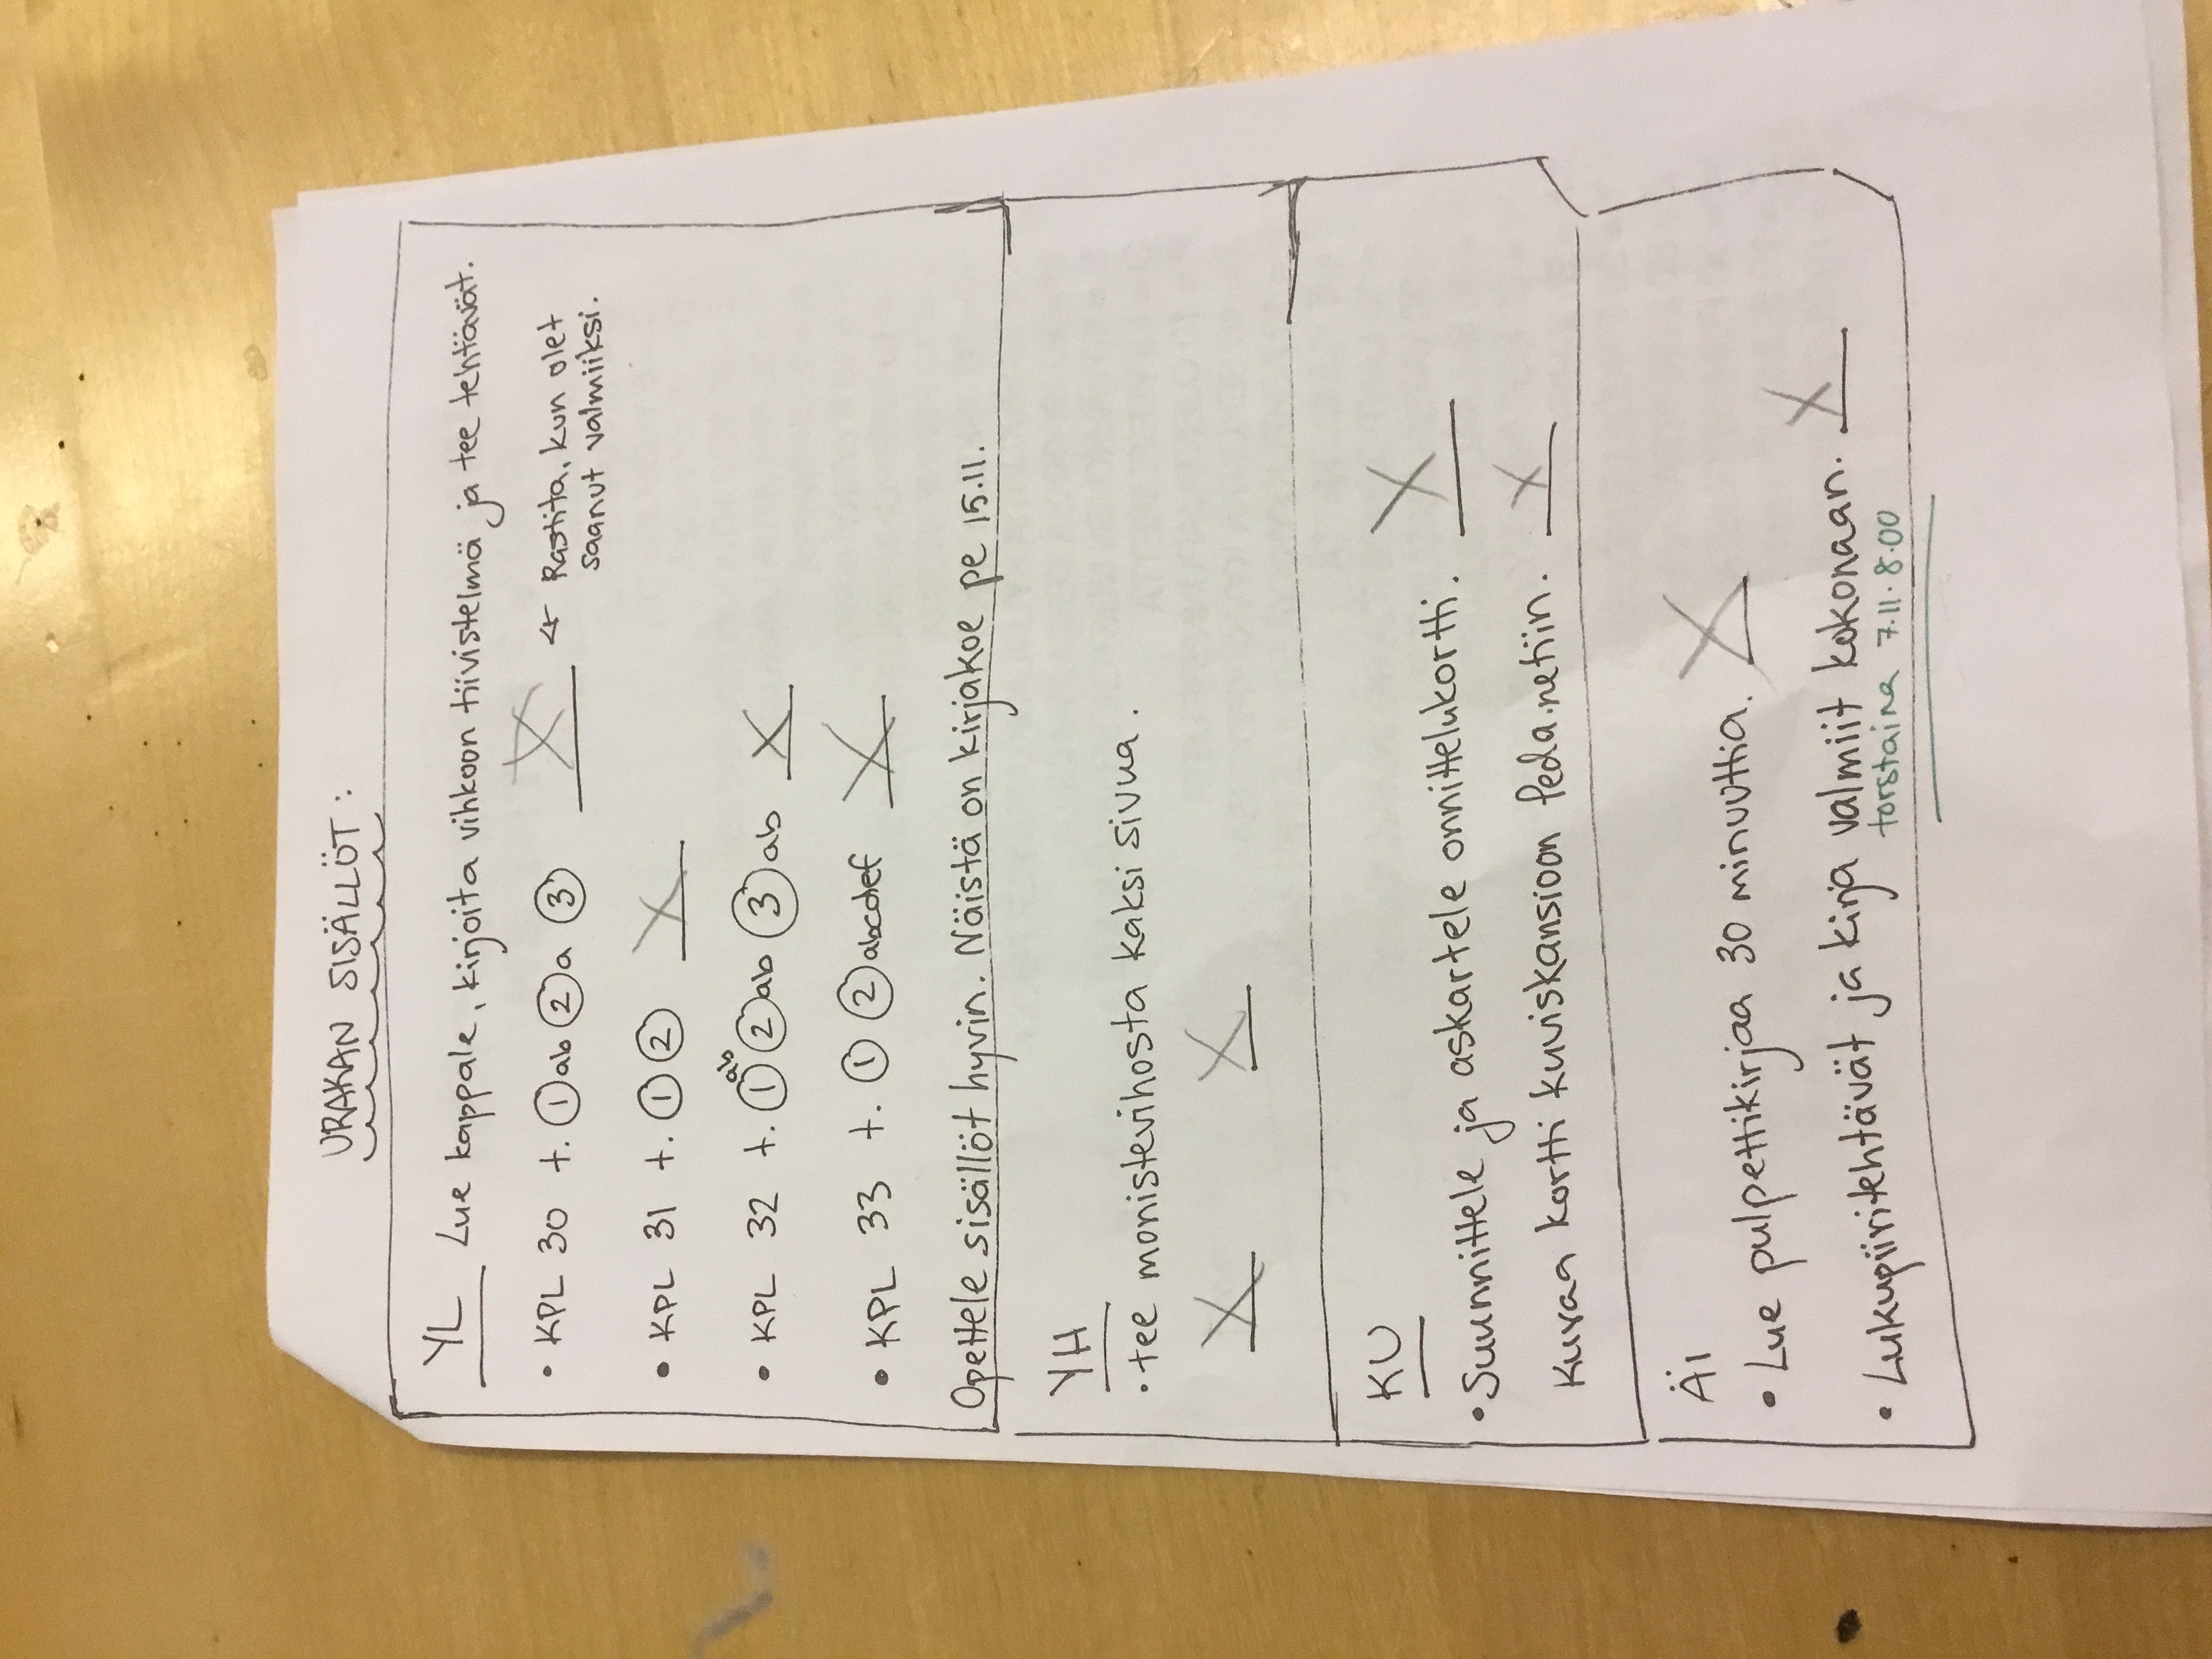 URAKAN SISÄLLÖT:
YL Lue kappale, kirjoita vihkoon tiivistelmä ja tee tehtävät.
• KPL 30 t. ① ab ② a ③ X ← Rastita, kun olet
saanut valmiiksi.
• KPL 31 t. ① ② X
• KPL 32 t. ① ab ② ab ③ ab X
• KPL 33 t. ① ② abcdef X
Opettele sisällöt hyvin. Näistä on kirjakoe pe 15.11.
YH
• tee monistevihosta kaksi sivua.
X X
KU
• Suunnittele ja askartele onnittelukortti. X
Kuvaa kortti kuviskansioon Peda.netiin. X
ÄI
• Lue pulpettikirjaa 30 minuuttia. X
• Lukupiiritehtävät ja kirja valmiit kokonaan. X
torstaina 7.11. 8.00